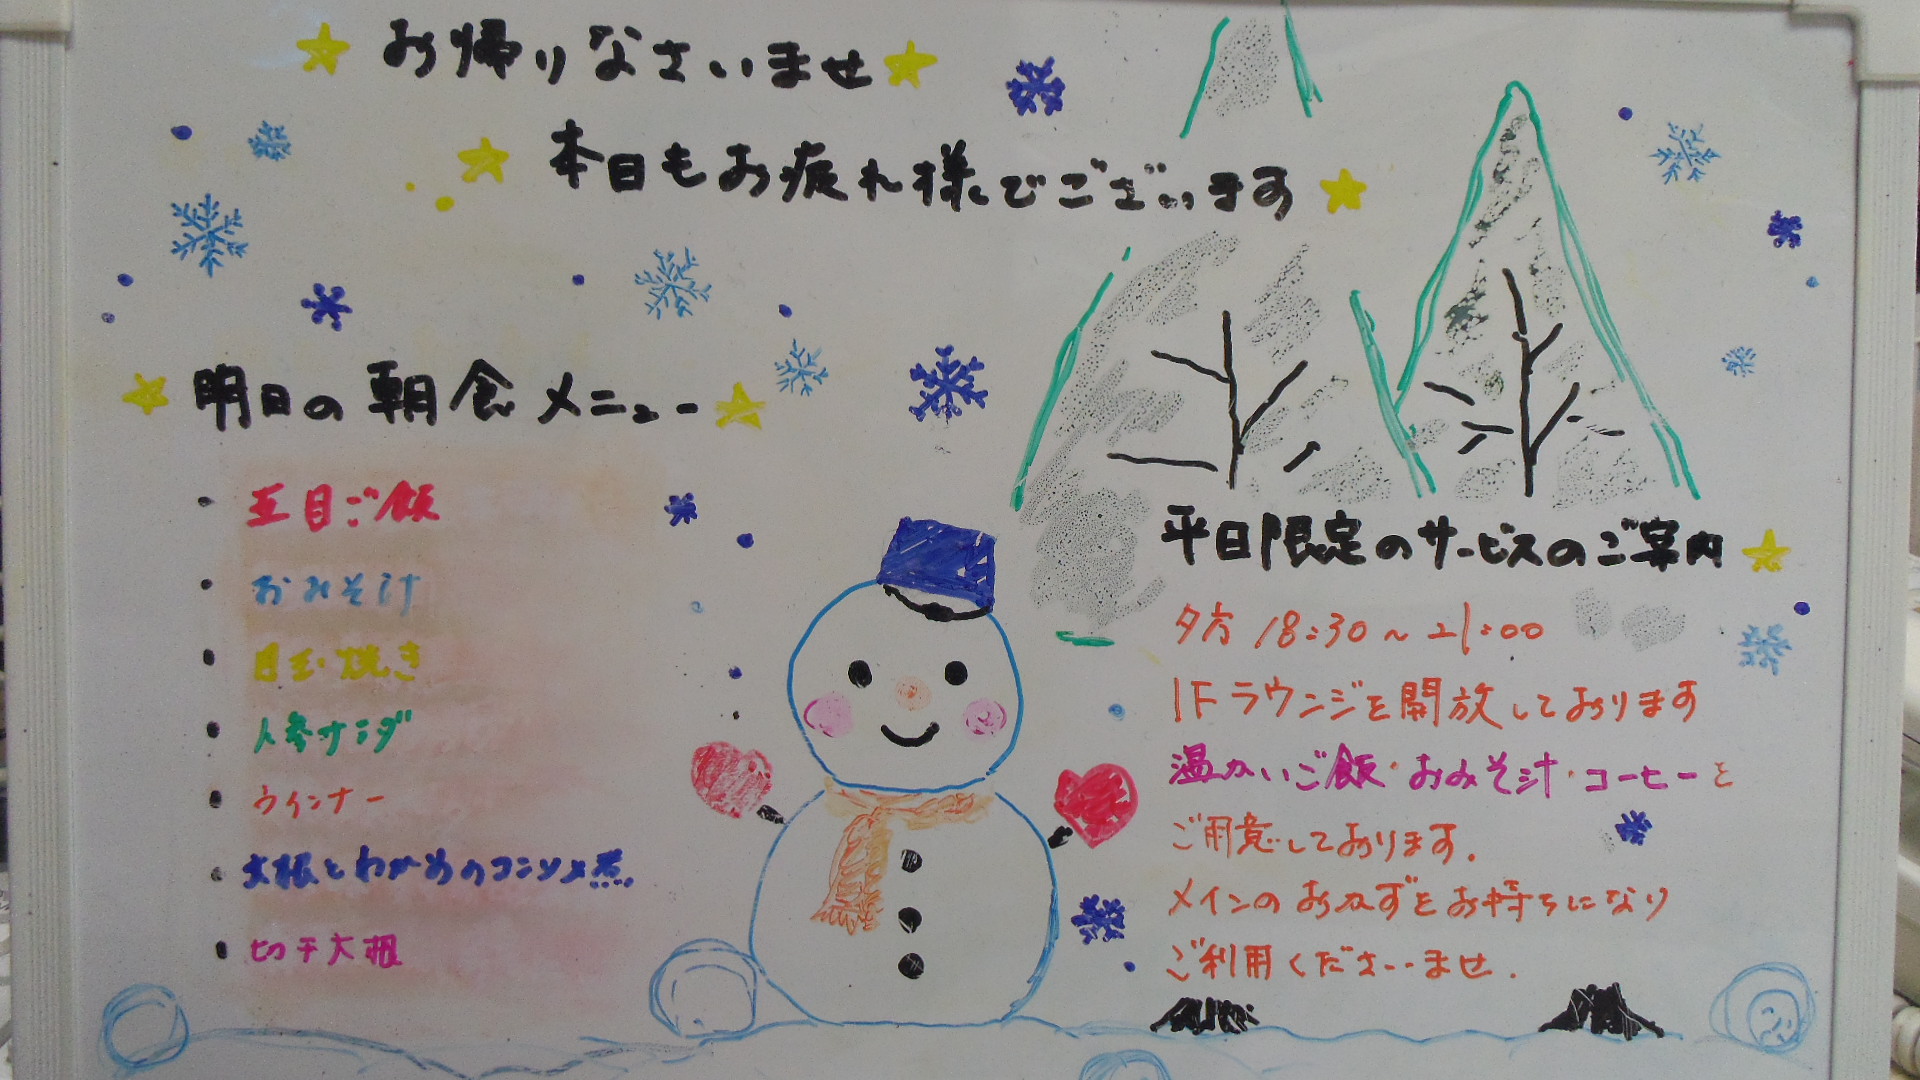 お帰りなさいませ
本日もお疲れ様でございます
明日の朝食メニュー
・五目ご飯
・おみそ汁
・目玉焼き
・人参サラダ
・ウインナー
・大根とわかめのコンソメ煮
・切干大根
平日限定のサービスのご案内
夕方 18:30~21:00
1Fラウンジを開放しております
温かいご飯・おみそ汁・コーヒーを
ご用意しております。
メインのおかずをお持ちになり
ご利用くださいませ.